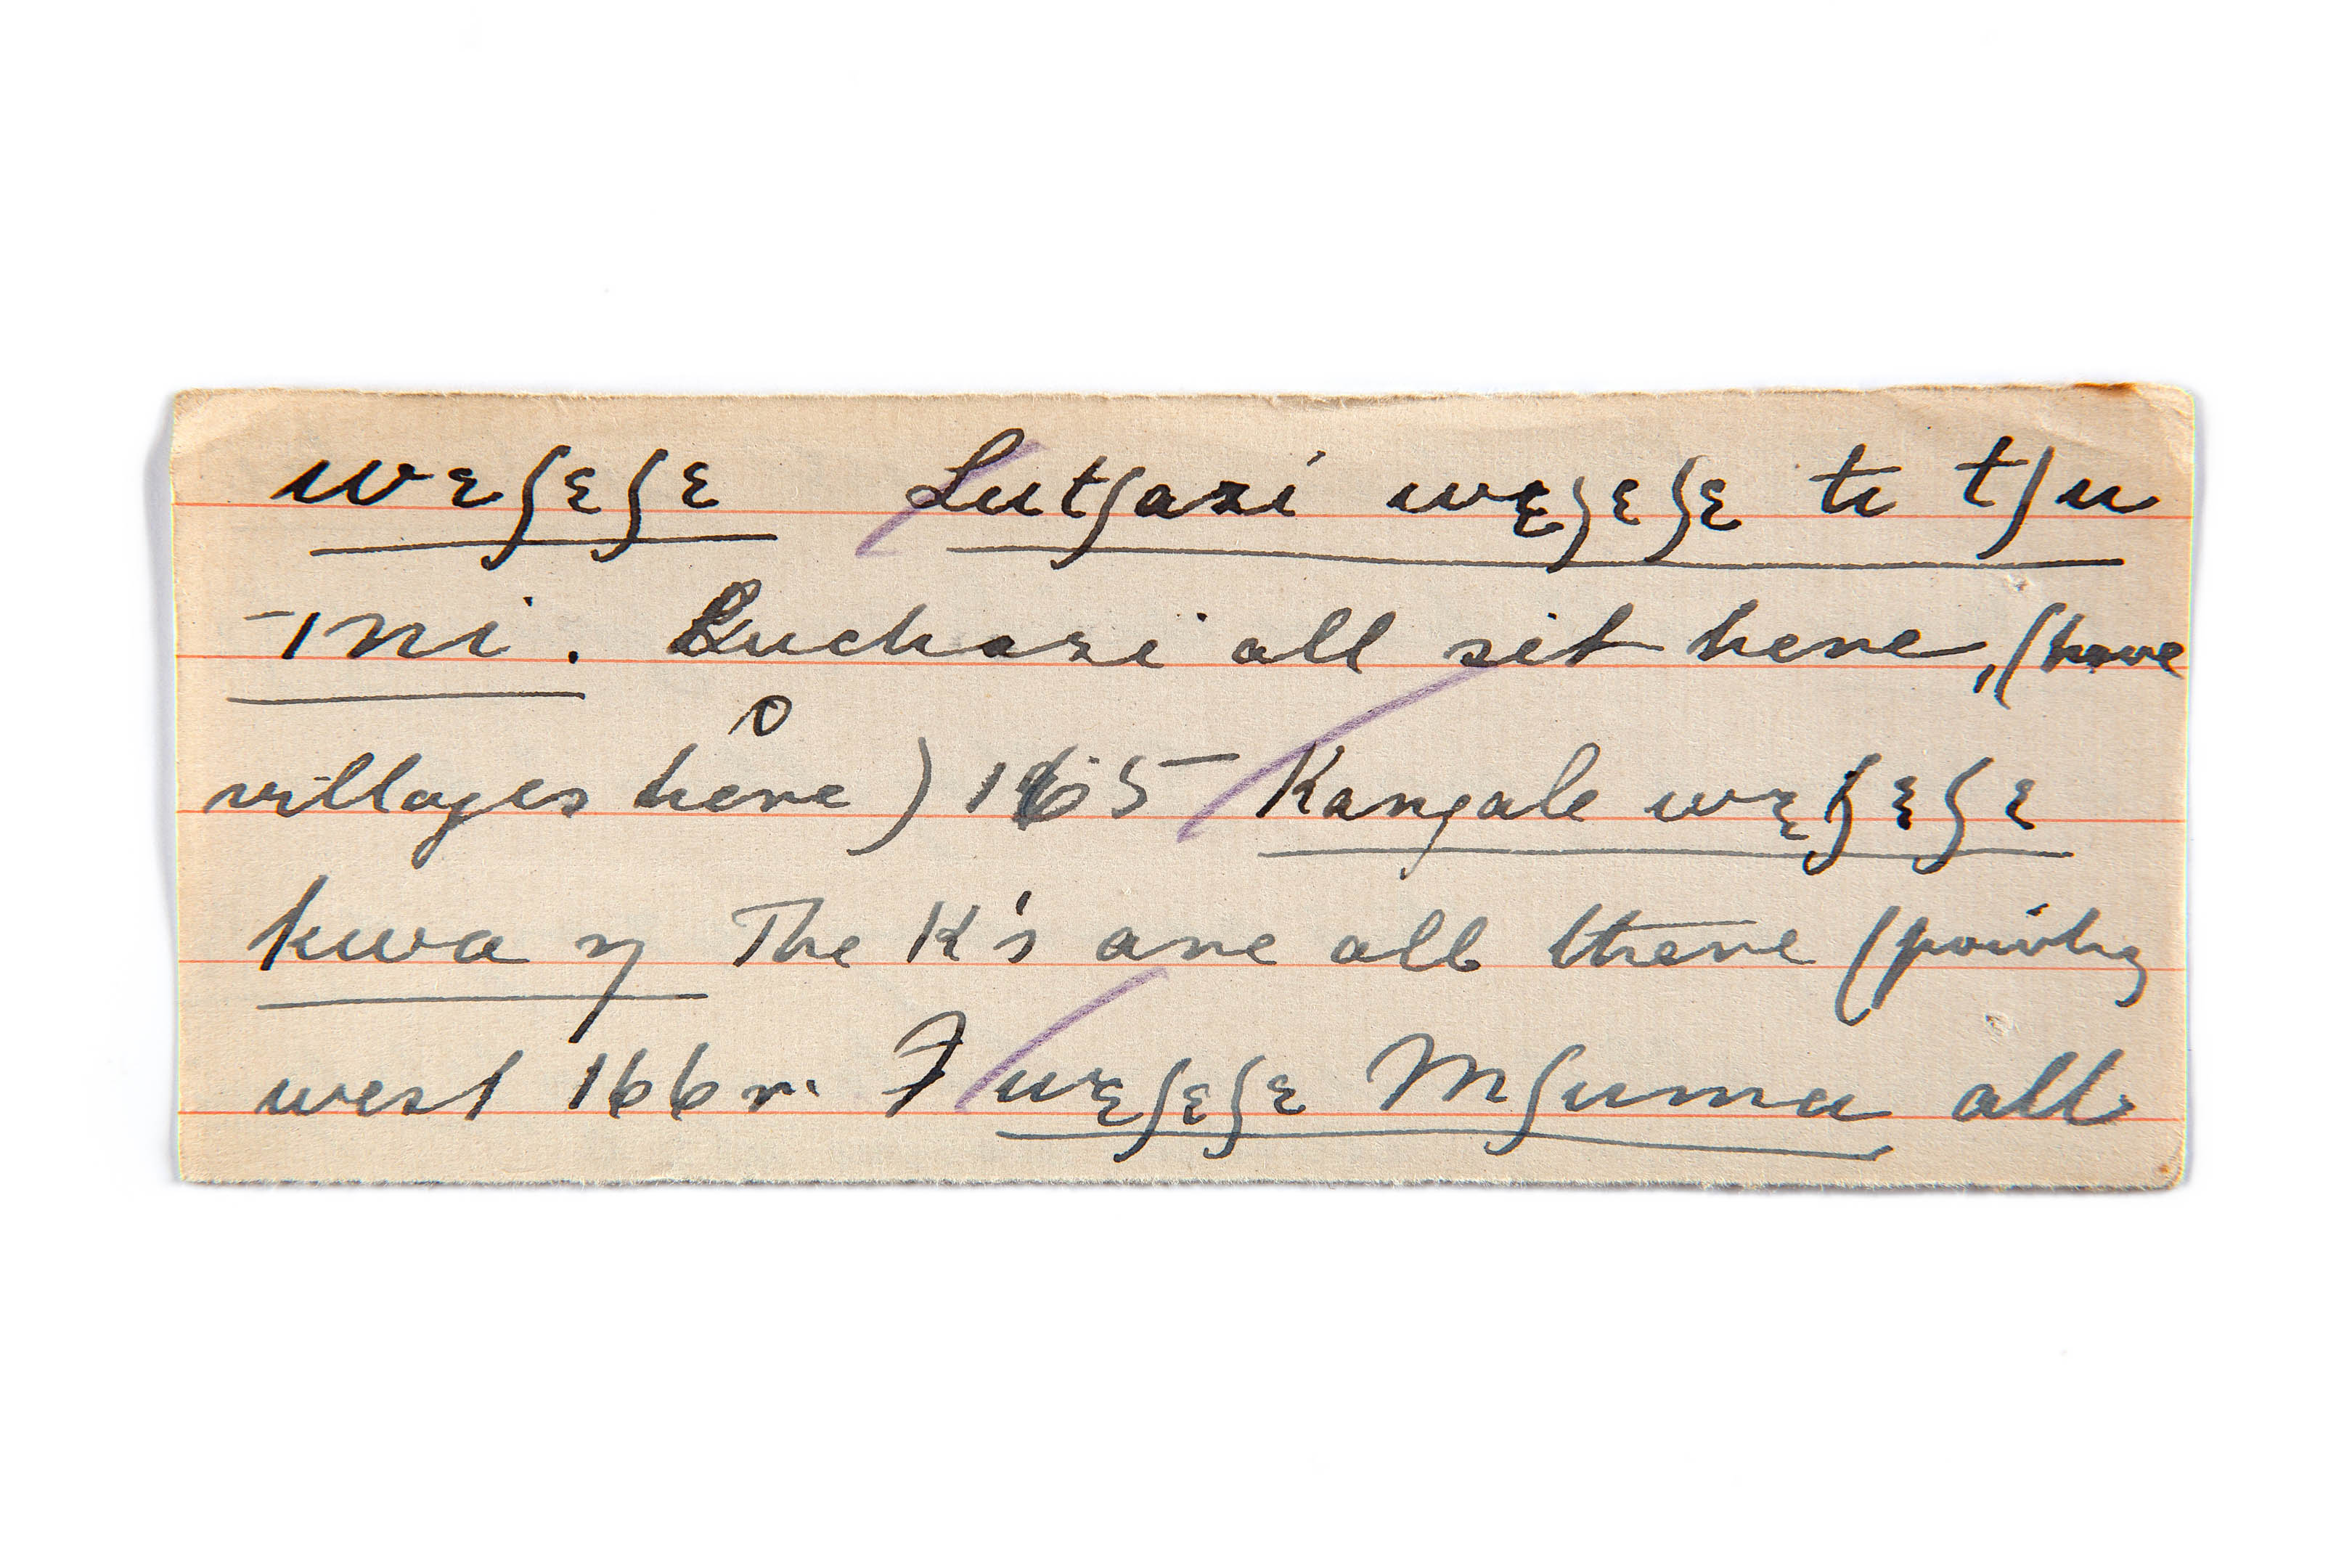 wɛʃɛʃɛ Lutʃazi wɛʃɛʃɛ ti tʃu
-ıni. Luchazi all sit here, (have
villages here) 165 Kangale wɛʃɛʃɛ
kwa ŋ The K's are all there (pointing
west 166 r. wɛʃɛʃɛ Mʃuma all